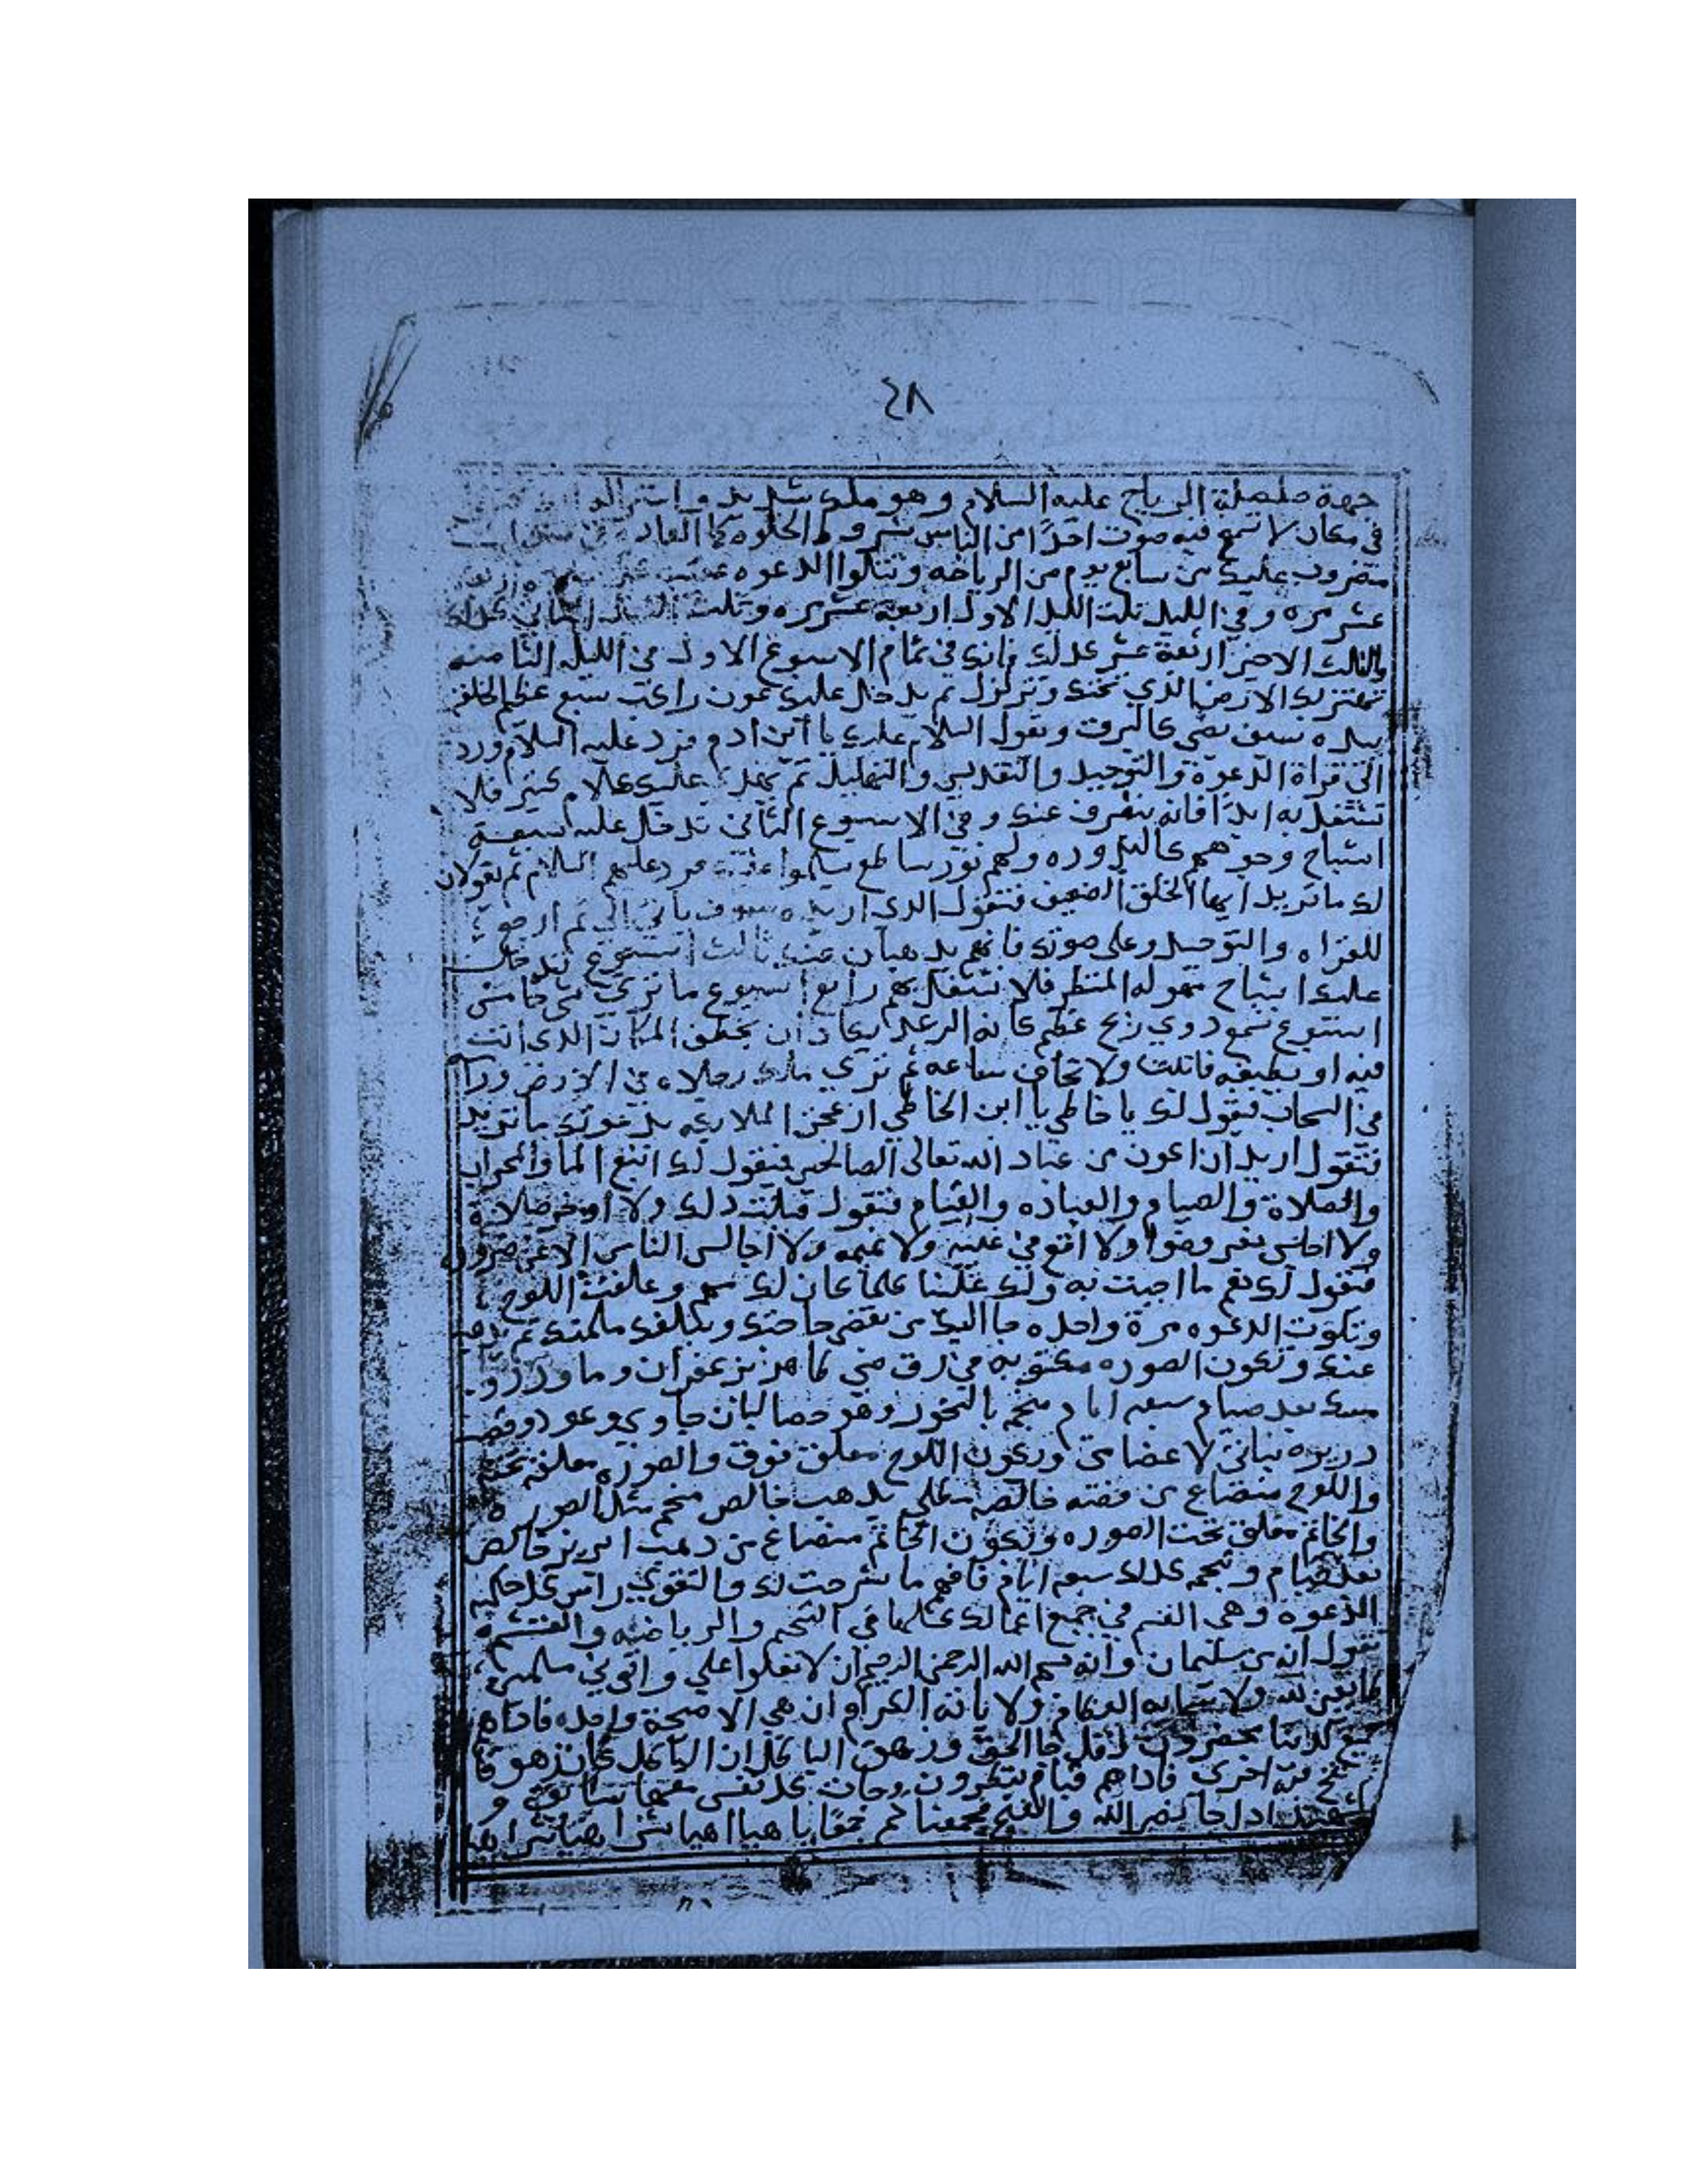 ٤٨
جهة صلصلة الرياح عليه السلام وهو ملك شديد وانت
في مكان لا تسمع فيه صوت احدًا من الناس بشروط الخلوه كما
مضروب عليك من سابع يوم من الرياضه وتتلوا الدعوه
عشر مره وفي الليل تلت الليل الاول اربعة عشر مره وتلت الثاني كدلك
والتالت الاخير اربعة عشر كدلك فانك في تمام الاسبوع الاول في الليله الثامنه
تهتز بك الارض الذي تحتك وتتزلزل ثم يدخل عليك عون راكب سبع عظيم الخلقه
بيده سيف يضي كالبرق ويقول السلام عليك يا ابن ادم فرد عليه السلام ورد
الي قراة الدعوة والتوحيد والتقديس والتهليل ثم عليك كلام كتير فلا
تشتغل به ابدًا فانه ينصرف عنك وفي الاسبوع الثاني تدخل عليك سبعة
اشباح وجوههم كالبدوره ولهم نور ساطع يسلموا عليك فرد عليهم السلام ثم يقولان
لك ما تريد ايها الخلق الضعيف فتقول الدي اريده سوف ياتي الي ثم ارجع
للقراه والتوحيد وعلي صوتك فانهم يدهبان عنك ثالث اسبوع تدخل
عليك اشباح مهوله المنظر فلا تشتغل بهم رابع اسبوع ما تري شي خامس
اسبوع تسمع دوي ريح عظيم كانه الرعد يكاد ان يخطف المكان الدي انت
فيه او يطبقه فاتبت ولا تخاف ساعه ثم تري ملك رجلاه في الارض وراسه
في السحاب فيقول لك يا خاطي يا ابن الخاطي ازعجت الملايكه بدعوتك ما تريد
فتقول اريد ان اكون من عباد الله تعالي الصالحين فيقول لك اتبع الما والمحراب
والصلاة والصيام والعباده والقيام فتقول قبلت دلك ولا أوخر صلاة
ولا اجلس بغير وضوا ولا اقع في غيبه ولا نميمه ولا اجالس الناس الا عن ضرورة
فيقول لك نعم ما اجبت به ولك علينا كلما كان لك مهم وعلقت اللوح
وتلوت الدعوه مرة واحده جا اليك من يقضي حاجتك ويبلغك ملمتك ثم يدهب
عنك وتكون الصوره مكتوبه في رق ضبي طاهر بزعفران وما ورد و
مسك بعد صيام سبعه ايام منجم بالبخور وهو حصا لبان جاوي وعود وقصب
دريره نباتي لا عضامي ويكون اللوح معلق فوق والصوره معلقه تحته
واللوح منضاع من فضه خالصه علي بدهب خالص منجم مثل الصوره
والخاتم معلق تحت الصوره ويكون الخاتم منضاع من دهب ابريز خالص
بعد صيام ونجمه كدلك سبعه ايام فافهم ما شرحت لك والتقوي راس كل حكمه
الدعوه وهي القسم في جميع اعمالك كلها في التنجيم والرياضه والقسم
تقول انه من سليمان وانه بسم الله الرحمن الرحيم ان لا تعلوا علي واتوني مسلمين
طايعين لله ولا باية الكرام ان هي الا صيحة واحده فاداهم
جميع لدينا محضرون قل جا الحق وزهق الباطل ان الباطل كان زهوقا
نفخ فيه اخري فاداهم قيام ينظرون وجات كل نفس معها سايق و
شهيد ادا جا نصر الله والفتح فجمعناهم جمعًا يا هيا اهيا شراهيا